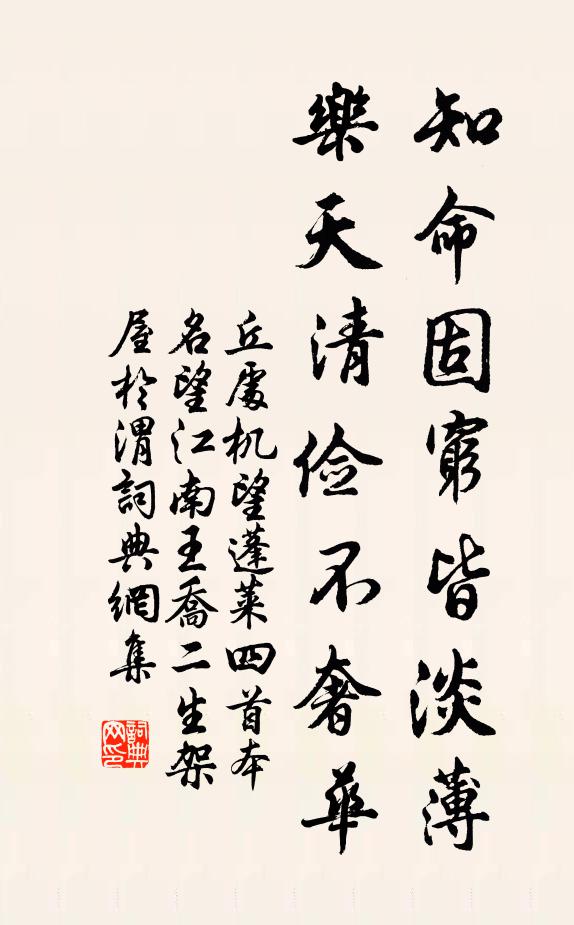 知命固窮皆淡薄
樂天清俭不奢華
丘處机望蓬莱四首本
名望江南王喬二生架
屋於渭詞典網集
詞典网印